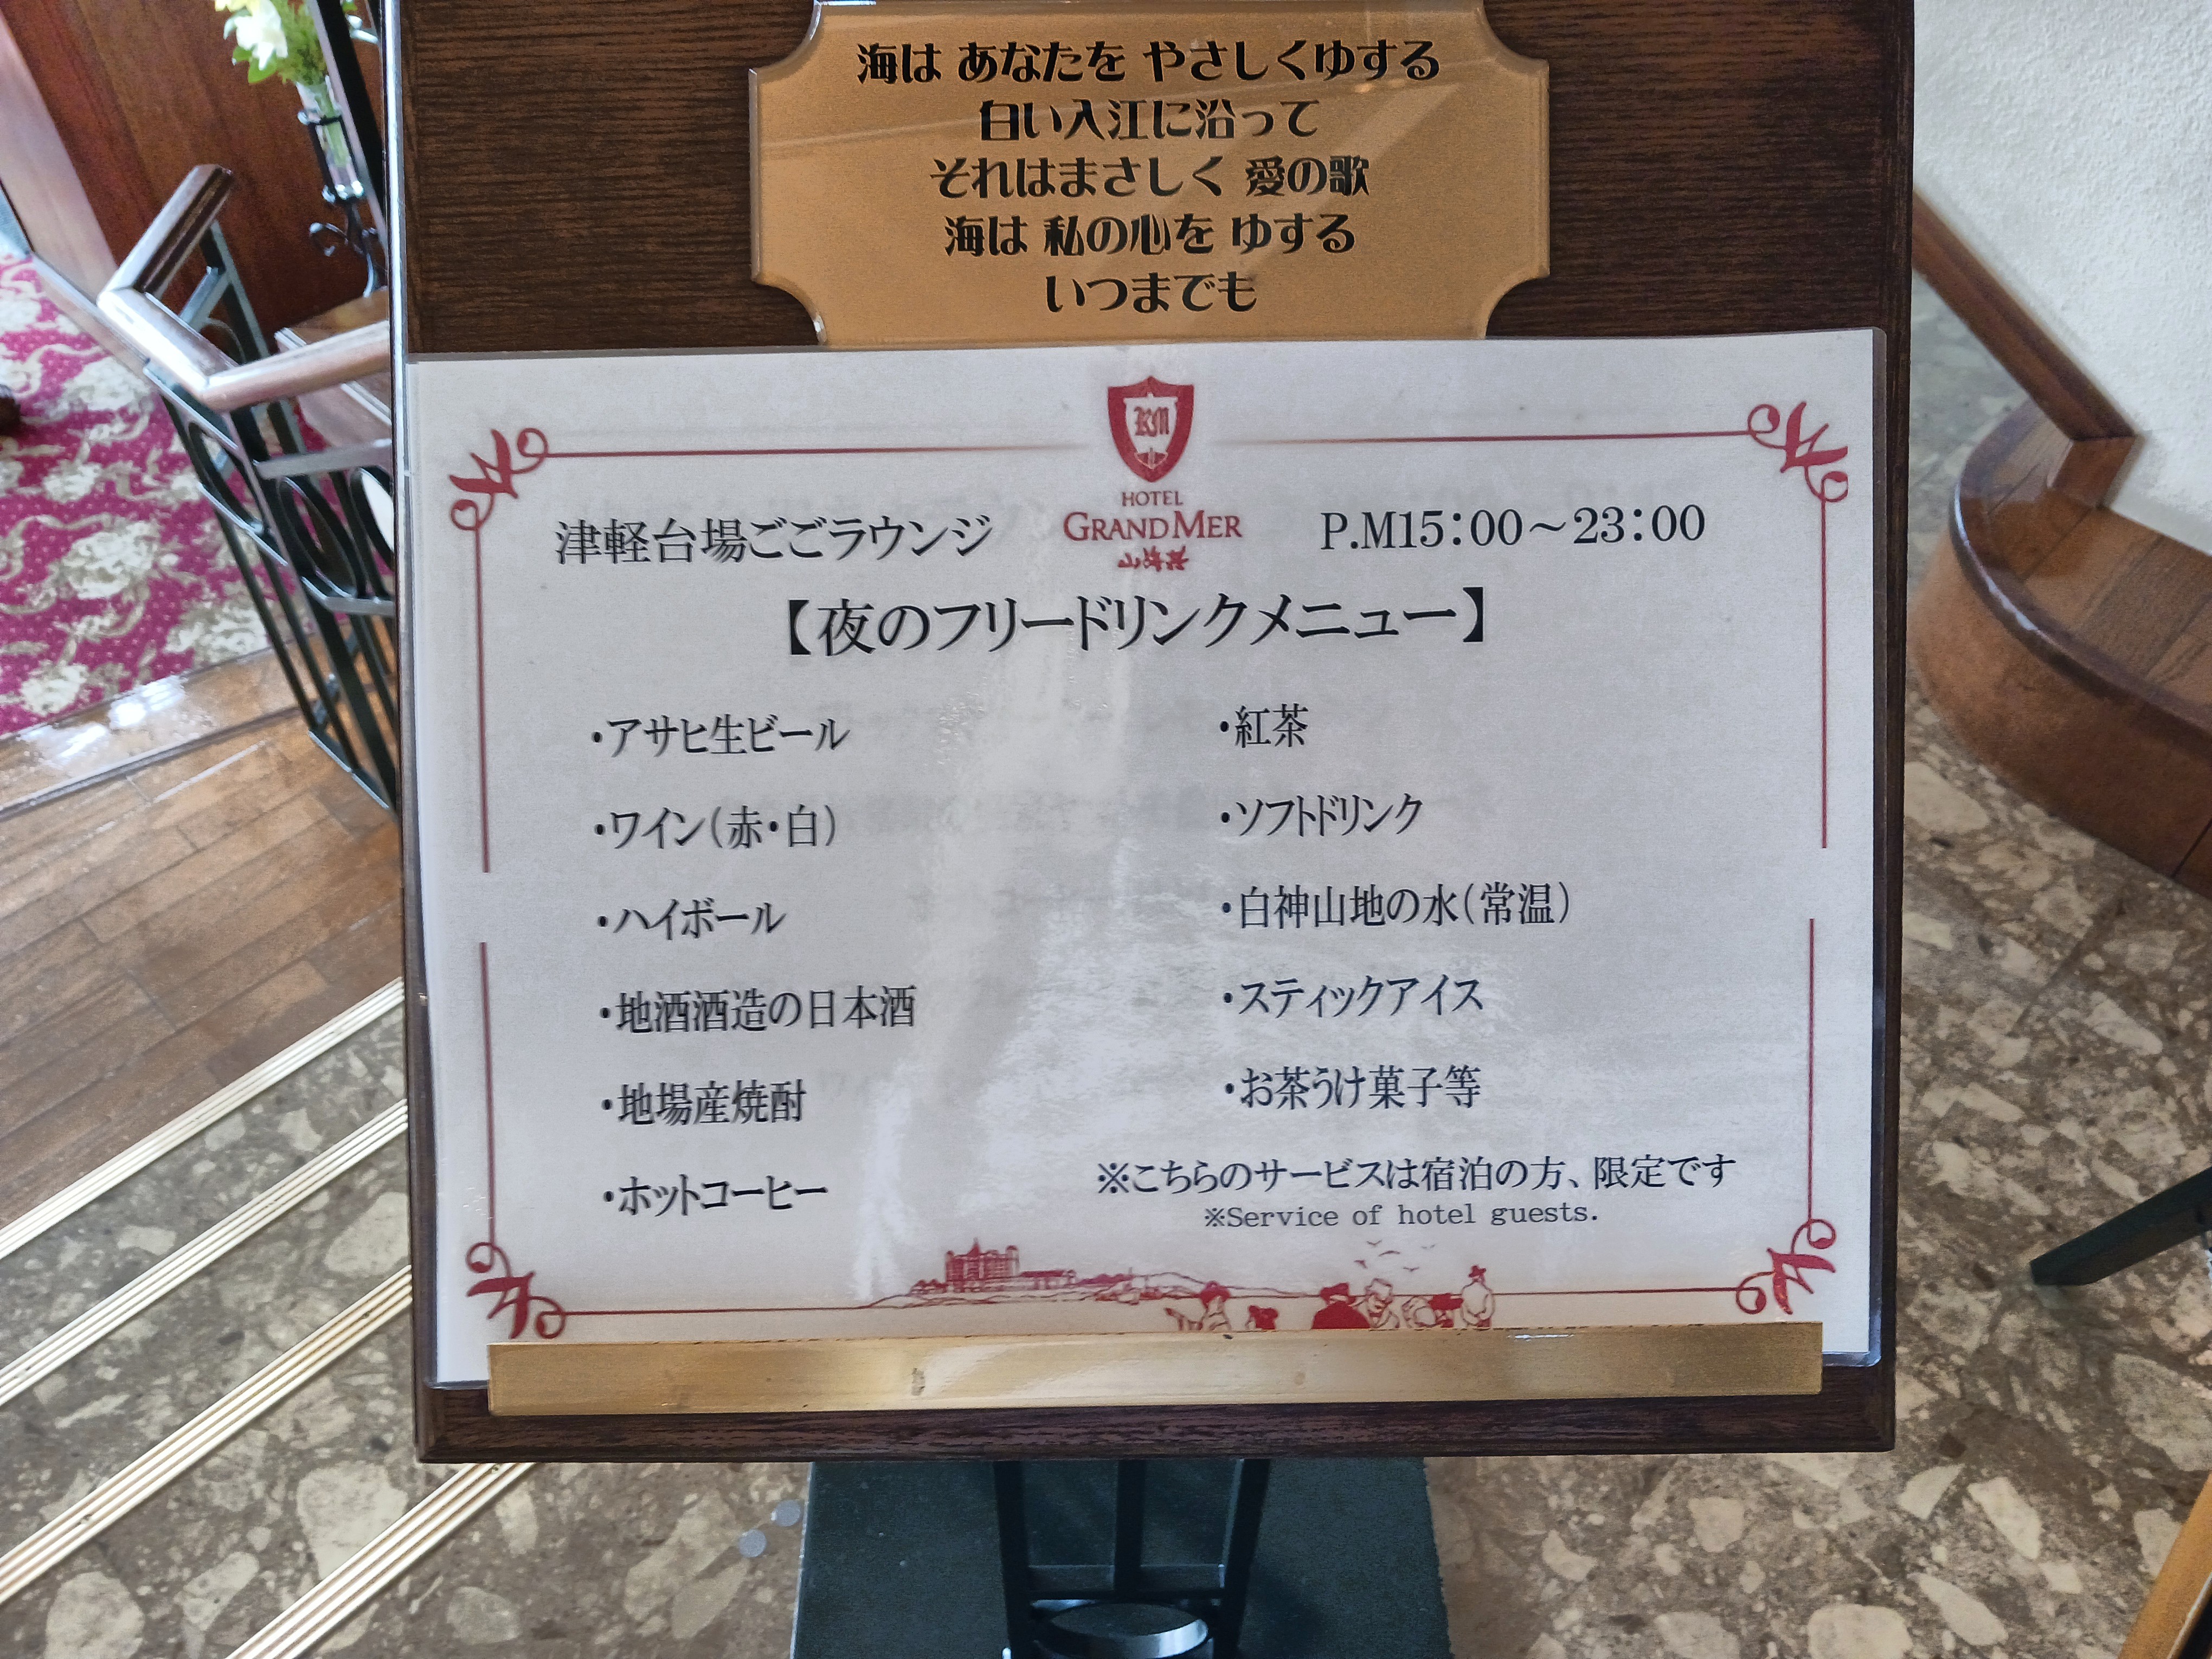 海は あなたを やさしくゆする
白い入江に沿って
それはまさしく 愛の歌
海は 私の心を ゆする
いつまでも
HOTEL
GRANDMER
山海荘
津軽台場ごごラウンジ
P.M15:00～23:00
【夜のフリードリンクメニュー】
・アサヒ生ビール
・ワイン(赤・白)
・ハイボール
・地酒酒造の日本酒
・地場産焼酎
・ホットコーヒー
・紅茶
・ソフトドリンク
・白神山地の水(常温)
・スティックアイス
・お茶うけ菓子等
※こちらのサービスは宿泊の方、限定です
※Service of hotel guests.